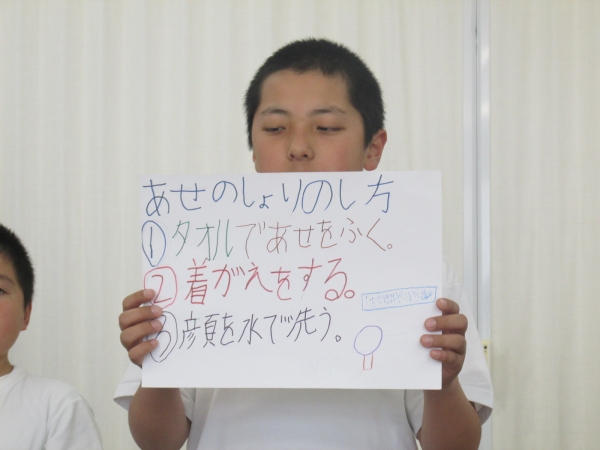 あせのしょりのし方
①タオルであせをふく。
②着がえをする。
③彦頁を水で洗う。